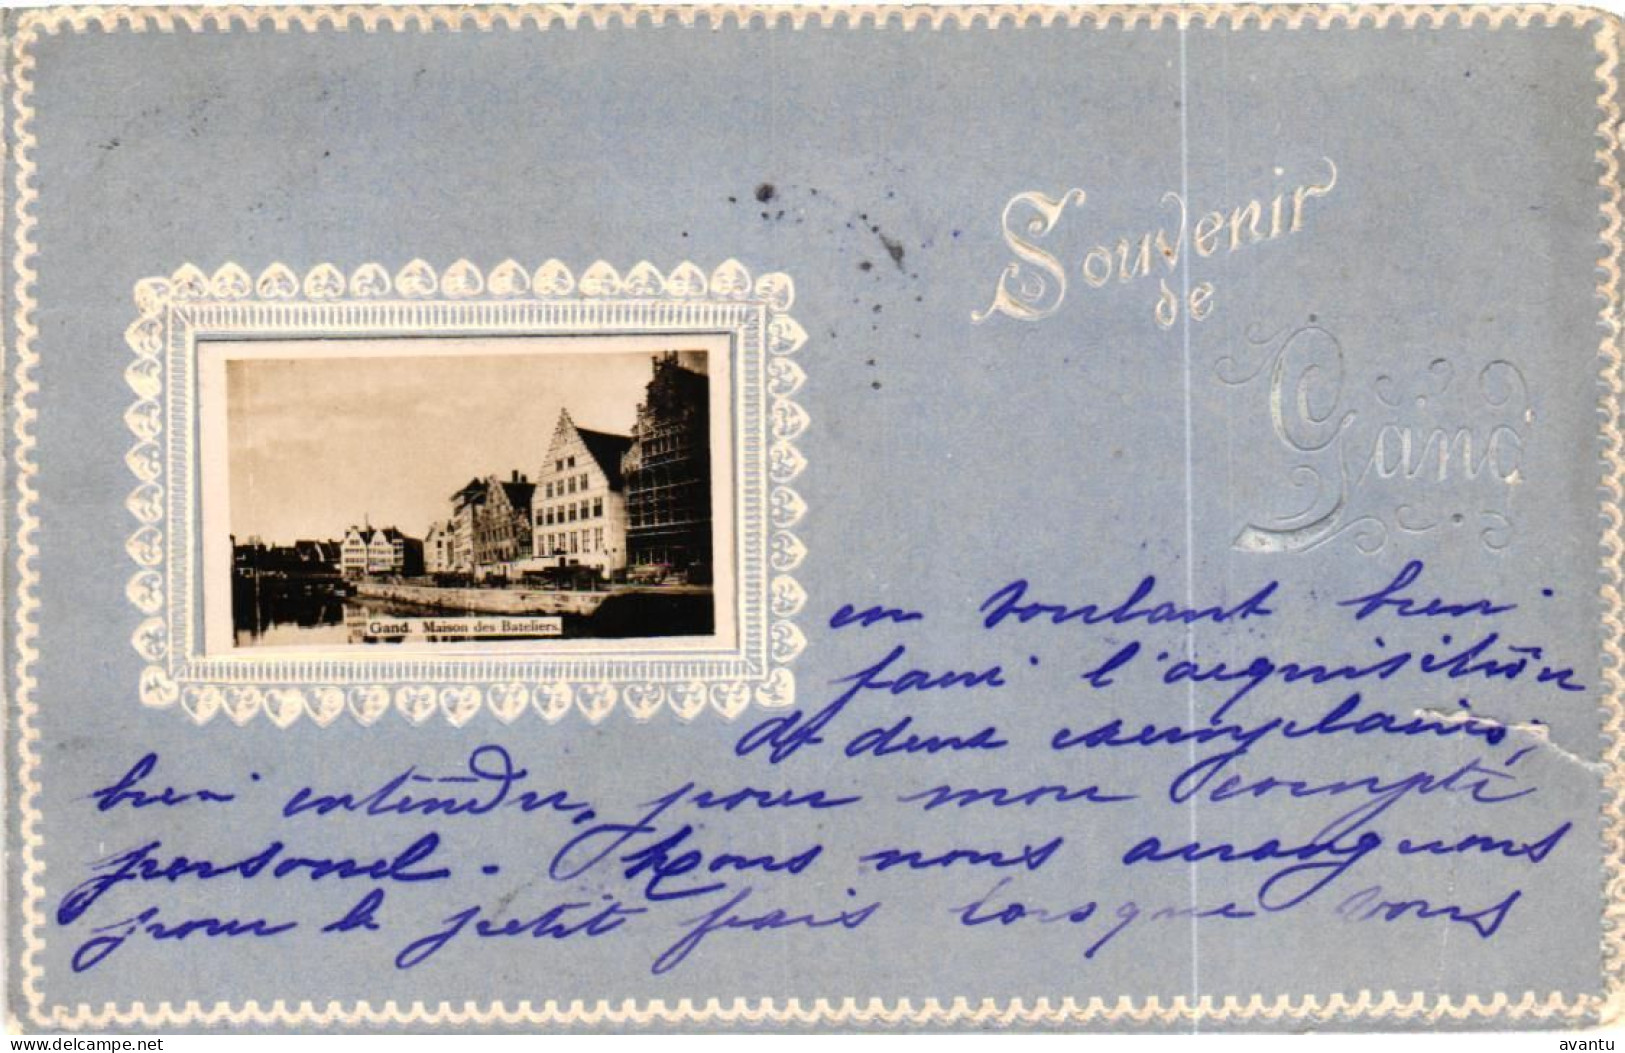 Souvenir
de
Gand
Gand. Maison des Bateliers.
en voulant bien
faire l'acquisition
de deux exemplaires,
bien entendu, pour mon compte
personel. Nous nous arrangerons
pour le petit frais lorsque vous
www.delcampe.net
avantu